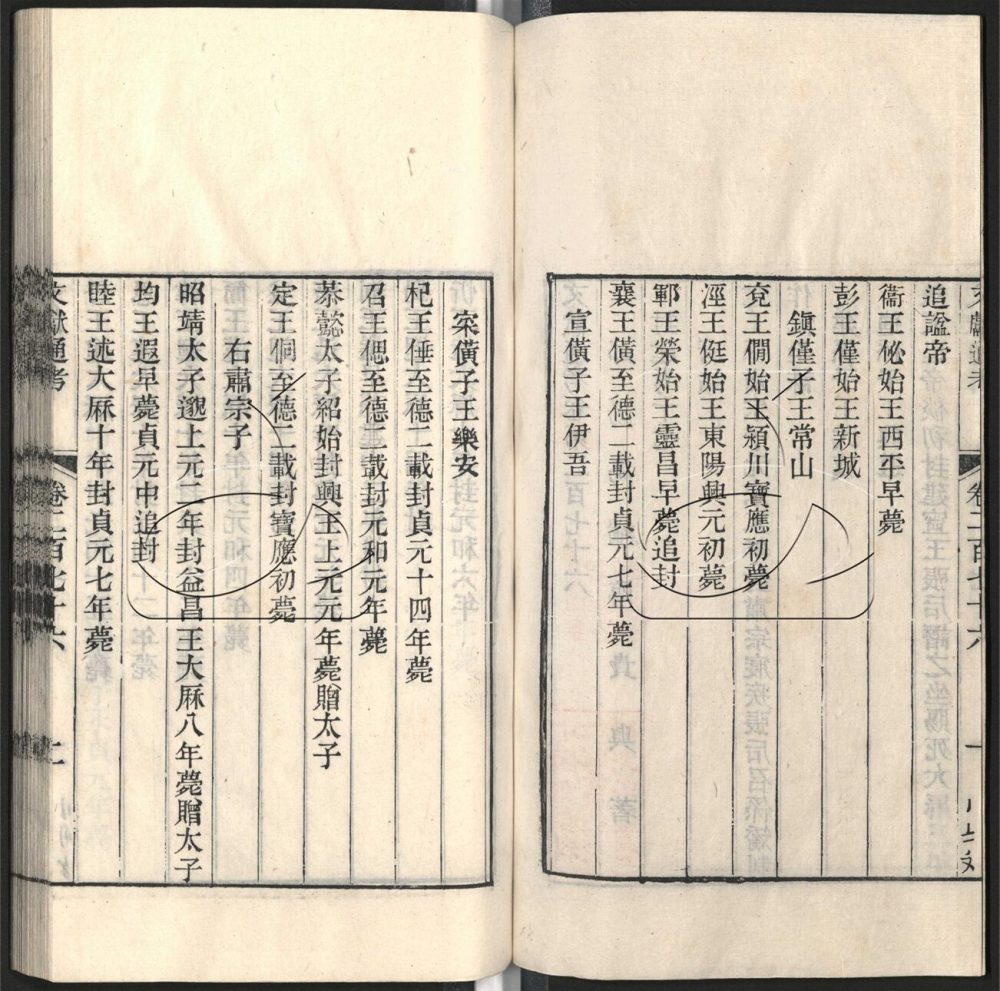 追諡帝
衞王佖始王西平早薨
彭王僅始王新城
鎮僅子王常山
兗王僩始王潁川寶應初薨
涇王侹始王東陽興元初薨
鄆王榮始王靈昌早薨追封
襄王僙至德二載封貞元七年薨
宣僙子王伊吾
寀僙子王樂安
杞王倕至德二載封貞元十四年薨
召王偲至德二載封元和元年薨
恭懿太子紹始封興王上元元年薨贈太子
定王侗至德二載封寶應初薨
右肅宗子
昭靖太子邈上元二年封益昌王大厤八年薨贈太子
均王遐早薨貞元中追封
睦王述大厤十年封貞元七年薨
文獻通考 卷二百七十六 二